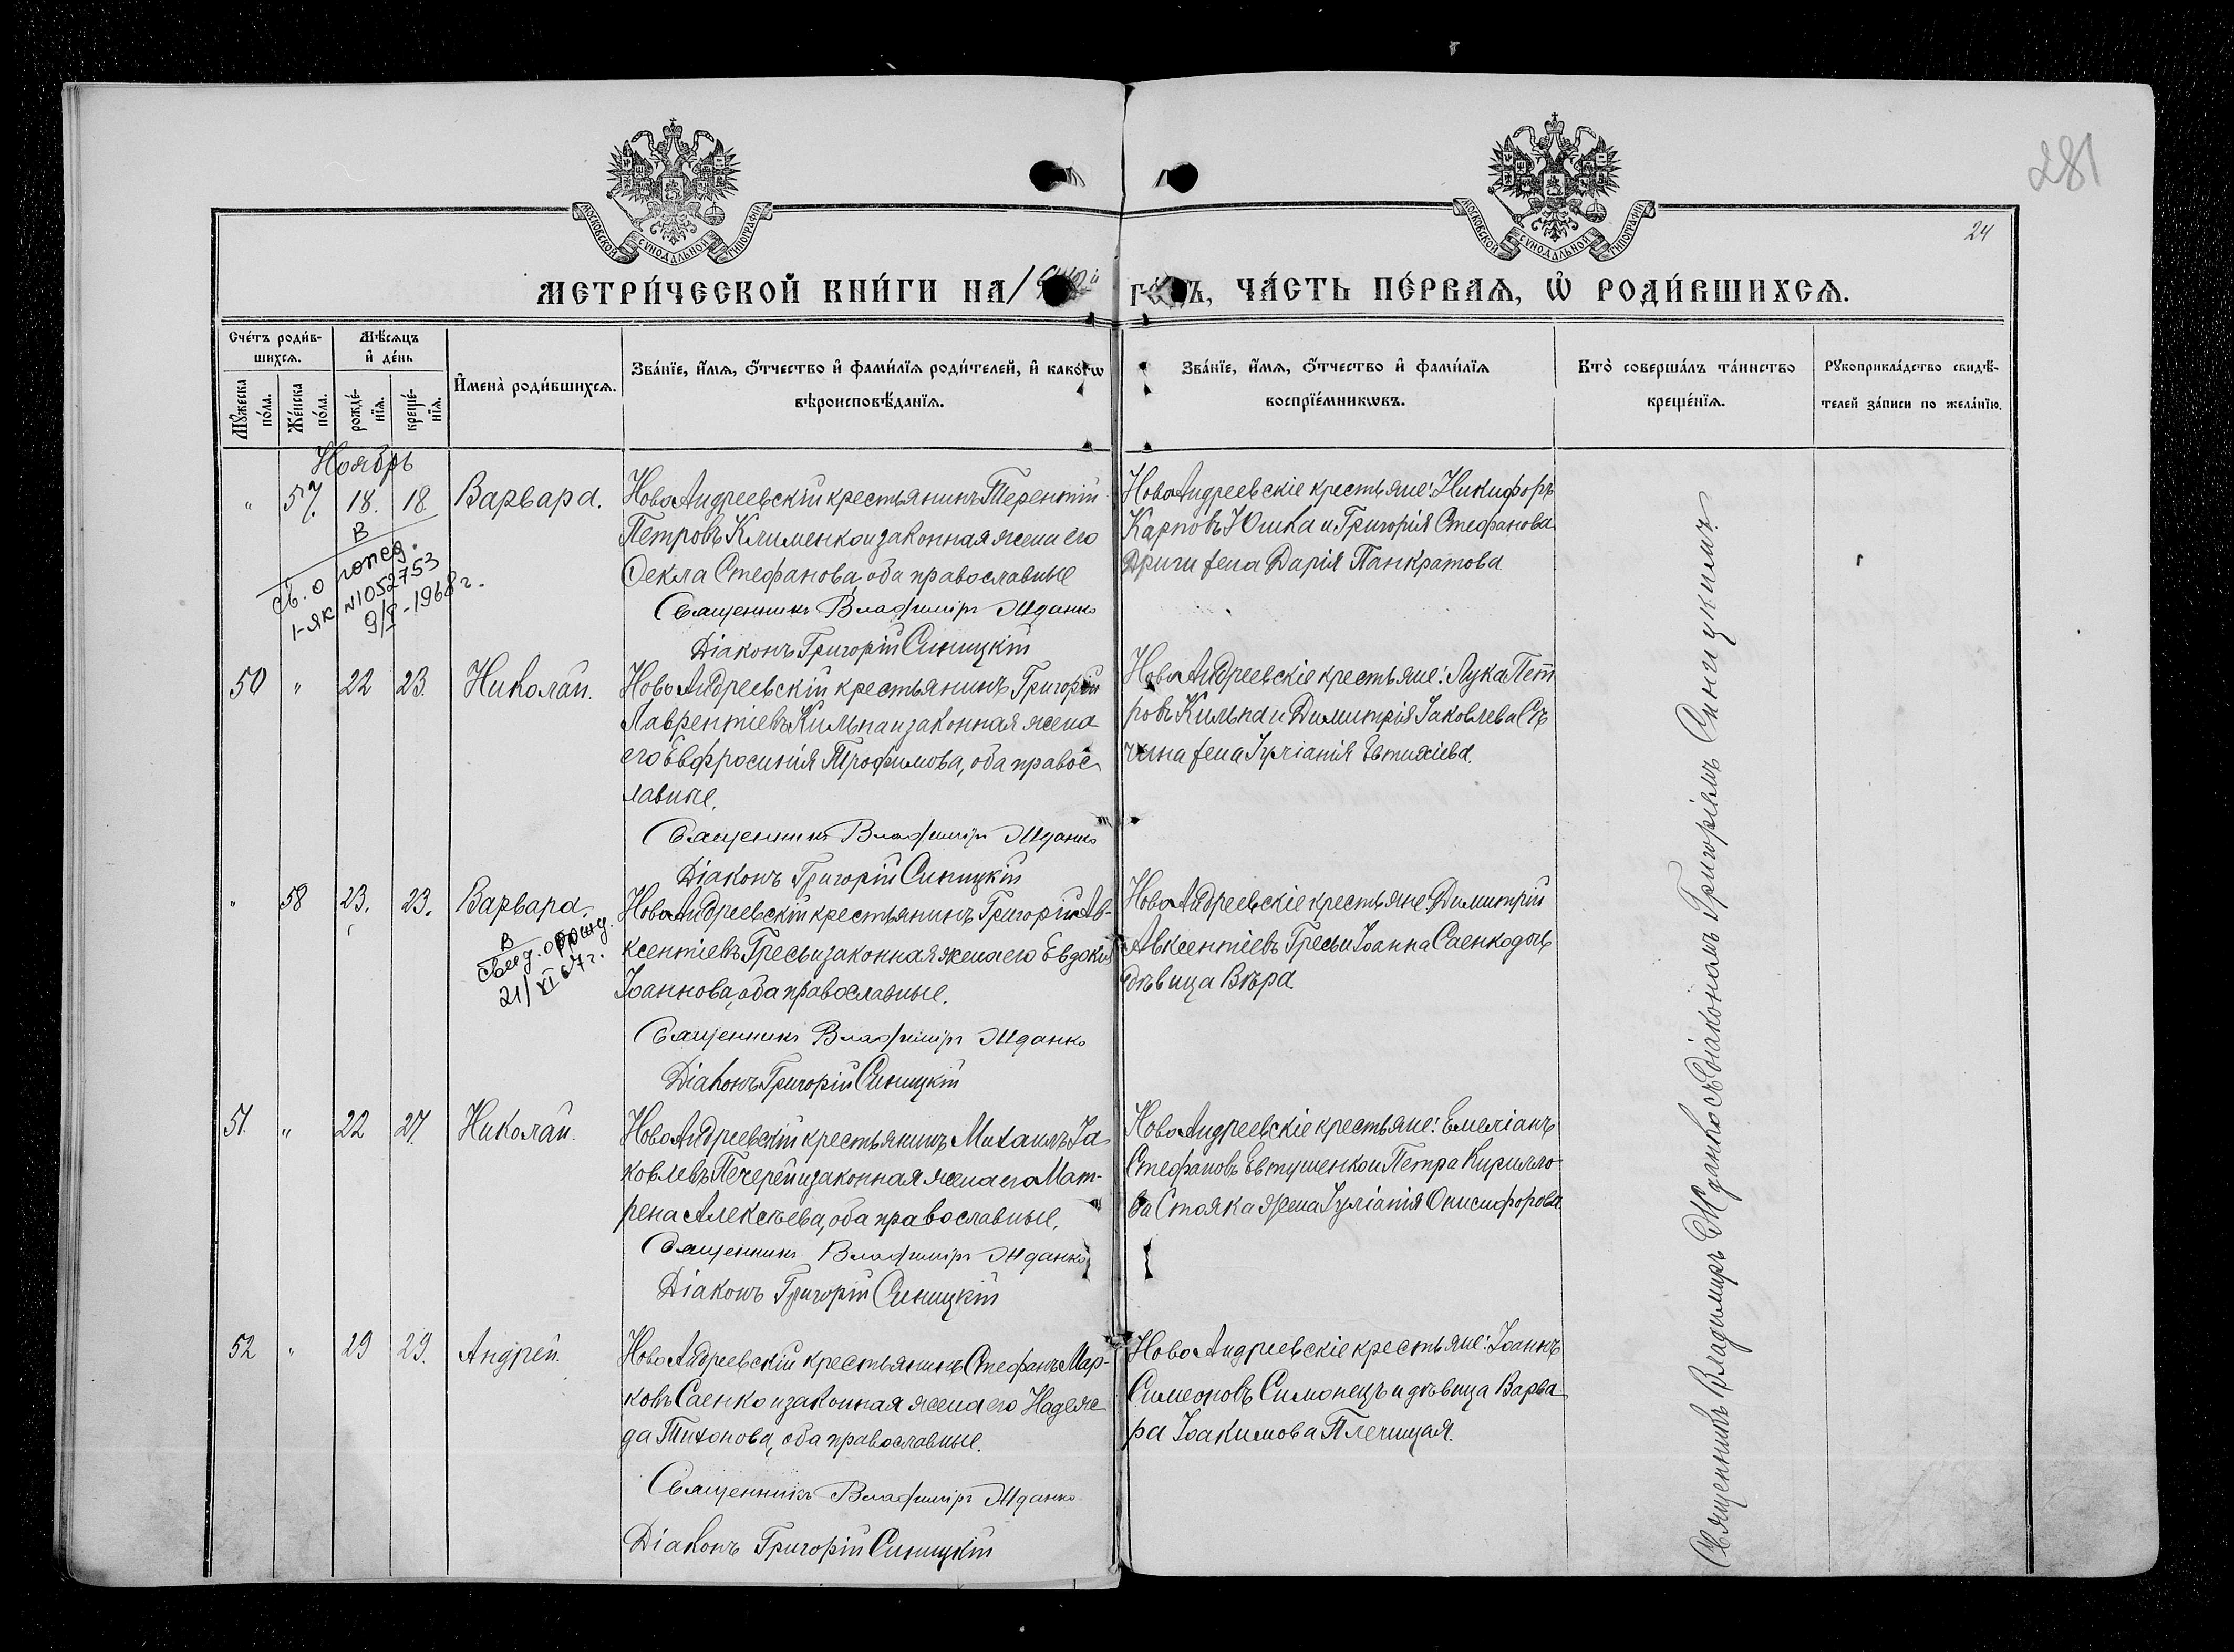 281
24
МОСКОВСКОЙ СѴНОДАЛЬНОЙ ТИПОГРАФІИ
МОСКОВСКОЙ СѴНОДАЛЬНОЙ ТИПОГРАФІИ
МЕТРИ́ЧЕСКОЙ КНИ́ГИ НА / ГО́ДЪ, ЧА́СТЬ ПЕ́РВАЯ, Ѡ РОДИ́ВШИХСЯ.
Сче́тъ роди́в-
шихся.
Мѣсяцъ
и де́нь
Мужеска по́ла.
Же́нска по́ла.
рожде́-
нїя.
креще́-
нїя.
Имена̀ роди́вшихся.
Зва́нїе, и́мя, о́тчество и фами́лїя роди́телей, и како́гѡ
вѣроисповѣ́данїя.
Зва́нїе, и́мя, о́тчество и фами́лїя
воспрїе́мникѡвъ.
Кто̀ соверша́лъ та́инство
креще́нїя.
Рукоприкла́дство свидѣ́-
телей за́писи по жела́нїю.
Ноябрь
" 57. 18. 18. Варвара.
НовоАндреевскій крестьянинъ Терентій
Петровъ Клименко и законная жена его
Ѳекла Стефанова, оба православные
Священникъ Владиміръ Жданко
Діаконъ Григорій Синицкій
НовоАндреевскіе крестьяне: Никифоръ
Карповъ Юшка и Григорія Стефанова
жена Дарія Панкратова
В
св. о
1-ЯК №1052753
9/V-1968 г.
50 " 22 23. Николай.
НовоАндреевскій крестьянинъ Григорій
Лаврентіевъ Кильпа и законная жена
его Евфросинія Трофимова, оба правос
лавные.
Священникъ Владиміръ Жданко
Діаконъ Григорій Синицкій
НовоАндреевскіе крестьяне: Лука Пет
ровъ Кильпа и Димитрія Іаковлева Сѣ
чина жена Іуліанія Евтихіева.
" 58 23. 23. Варвара.
В
свид. о рожд.
21/XI 67 г.
НовоАндреевскій крестьянинъ Григорій Ав-
ксентіевъ Гресь и законная жена его Евдокія
Іоаннова, оба православные.
Священникъ Владиміръ Жданко
Діаконъ Григорій Синицкій
НовоАндреевскіе крестьяне: Димитрій
Авксентіевъ Гресь и Іоанна Саенко дочь
дѣвица Вѣра.
51. " 22 27. Николай.
НовоАндреевскій крестьянинъ Михаилъ Іа-
ковлевъ Печерей и законная жена его Мат-
рена Алексѣева, оба православные.
Священникъ Владиміръ Жданко
Діаконъ Григорій Синицкій
НовоАндреевскіе крестьяне: Емеліанъ
Стефановъ Евтушенко и Петра Кирилло-
ва Стояка жена Іуліанія Онисифорова.
52 " 29 29. Андрей.
НовоАндреевскій крестьянинъ Стефанъ Мар-
ковъ Саенко и законная жена его Надеж-
да Тихонова, оба православные.
Священникъ Владиміръ Жданко
Діаконъ Григорій Синицкій
НовоАндреевскіе крестьяне: Іоаннъ
Симеоновъ Симонецъ и дѣвица Варва-
ра Іоакимова Плечицая.
Священникъ Владимиръ Жданко съ Діакономъ Григоріемъ Синицкимъ